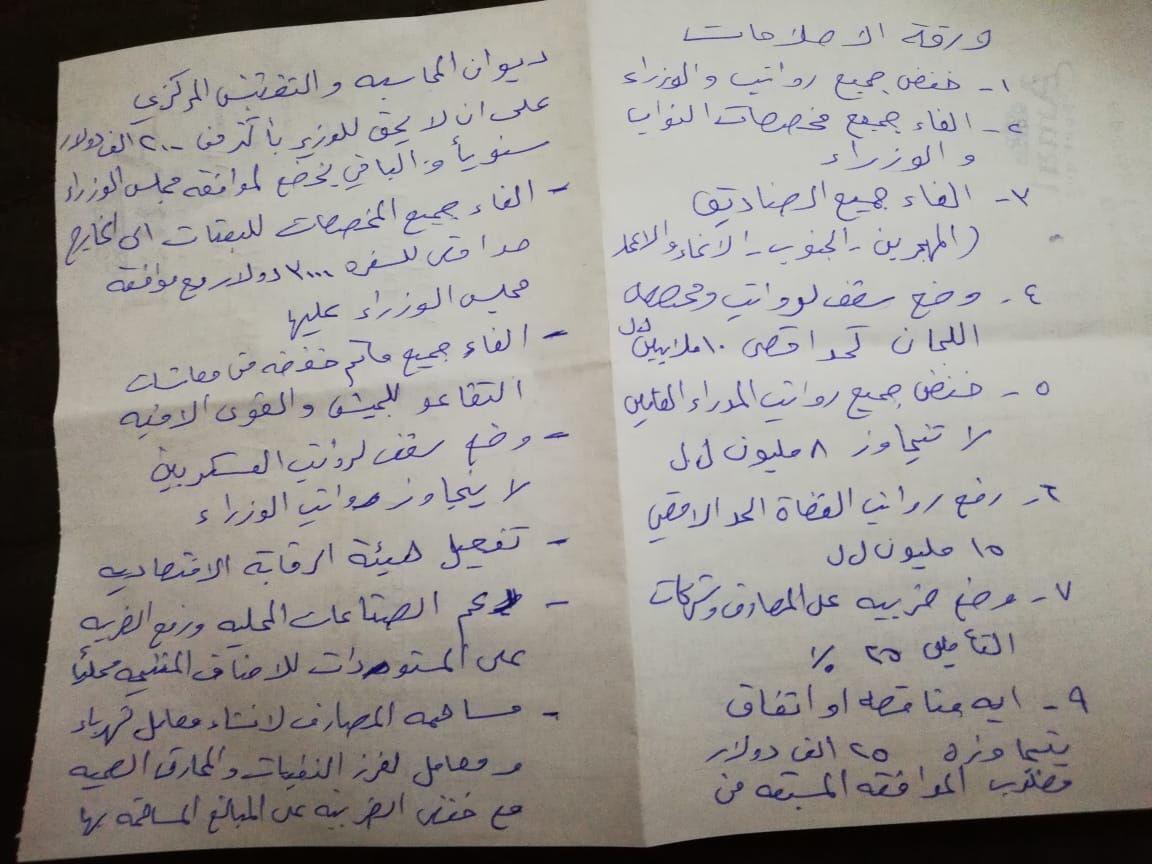 ورقة الاصلاحات
١- خفض جميع رواتب والوزراء
٢- الغاء جميع مخصصات النواب
والوزراء
٣- الغاء جميع الصناديق
(المهجرين - الجنوب - الانماء والاعمار
٤- وضع سقف لرواتب ومخصصه
اللجان كحد اقصى ١٠ ملايين ل.ل
٥- خفض جميع رواتب المدراء العامين
لا تتجاوز ٨ مليون ل ل
٦- رفع رواتب القضاة الحد الاقصى
١٥ مليون ل ل
٧- وضع ضريبه على المصارف وشركات
التأمين ٢٥ ٪
٩- ايه مناقصه او اتفاق
يتجاوزه ٢٥ الف دولار
مطلوب الموافقه المسبقه من
ديوان المحاسبه والتفتيش المركزي
على ان لا يحق للوزير باكثر من ٢٠٠ الف دولار
سنوياً والباقي يخضع لموافقه مجلس الوزراء
- الغاء جميع المخصصات للبعثات الى الخارج
حد اقصى للسفره ٣٠٠٠ دولار مع موافقة
مجلس الوزراء عليها
- الغاء جميع ماتم خفضه من معاشات
التقاعد للجيش والقوى الامنيه
- وضع سقف لرواتب العسكريين
لا يتجاوز رواتب الوزراء
- تفعيل هيئة الرقابة الاقتصاديه
- دعم الصناعات المحليه ورفع الضريبه
على المستوردات للاصناف المنتجه محلياً
- مساهمه المصارف لانشاء معامل كهرباء
ومعامل لفرز النفيات والمحارق الصحيه
مع خفض الضريبه على المبالغ المساهمة بها